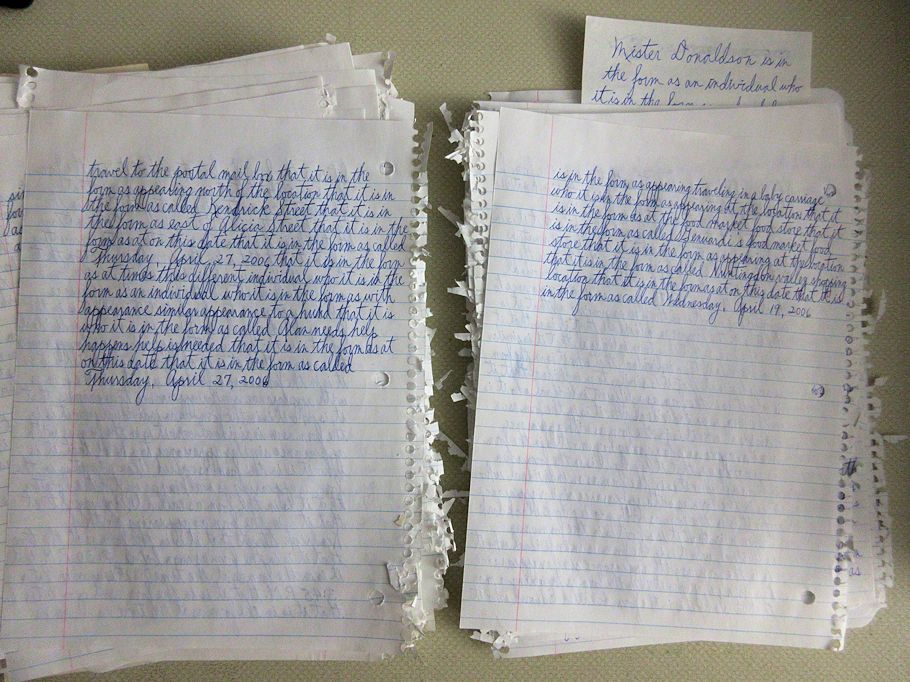 travel to the postal mail box that it is in the
form as appearing north of the location that it is in
the form as called Kendrick Street that it is in
the form as east of Alicia Street that it is in the
form as at on this date that it is in the form as called
Thursday, April, 27, 2006 that it is in the form
as at times this different individual who it is in the
form as an individual who it is in the form as with
appearance similar appearance to a hund that it is
who it is in the form as called Alan needs help
happens help is needed that it is in the form as at
on this date that it is in the form as called
Thursday, April 27, 2006
Mister Donaldson is in
the form as an individual who
it is in the form
is in the form as appearing traveling in a baby carriage
who it is in the form as appearing at the location that it
is in the form as at the food market food store that it
is in the form as called food market food
store that it is in the form as appearing at the location
that it is in the form as called Huntingdon valley shopping
location that it is in the form as at on this date that it is
in the form as called Wednesday, April 19, 2006